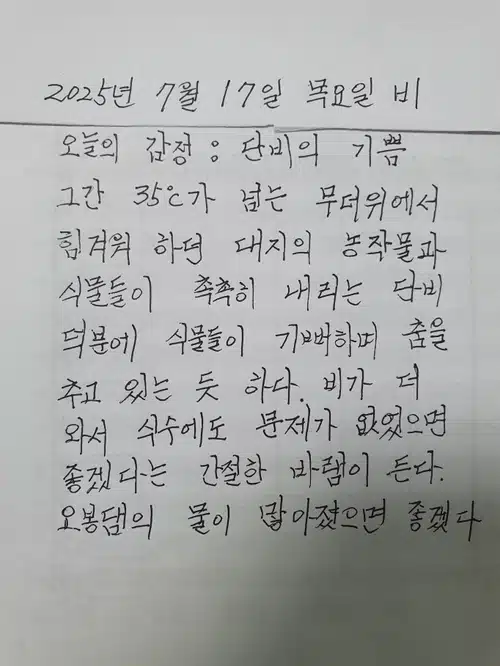 2025년 7월 17일 목요일 비
오늘의 감정 : 단비의 기쁨
그간 35℃가 넘는 무더위에서
힘겨워 하던 대지의 농작물과
식물들이 촉촉히 내리는 단비
덕분에 식물들이 기뻐하며 춤을
추고 있는 듯 하다. 비가 더
와서 식수에도 문제가 없었으면
좋겠다는 간절한 바램이 든다.
오봉댐의 물이 많아졌으면 좋겠다